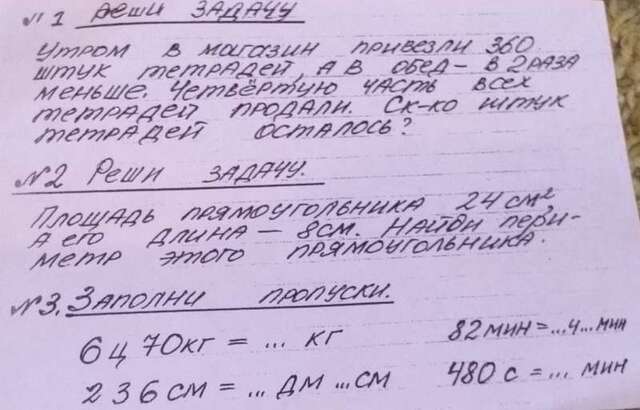 №1 Реши задачу
Утром в магазин привезли 360
штук тетрадей, а в обед - в 2 раза
меньше. Четвёртую часть всех
тетрадей продали. Ск-ко штук
тетрадей осталось?
№2 Реши задачу.
Площадь прямоугольника 24 см²,
а его длина - 8см. Найди пери-
метр этого прямоугольника.
№3. Заполни пропуски.
6 ц 70кг = ... кг 82мин = ...ч...мин
236см = ... дм ...см 480 с = ... мин